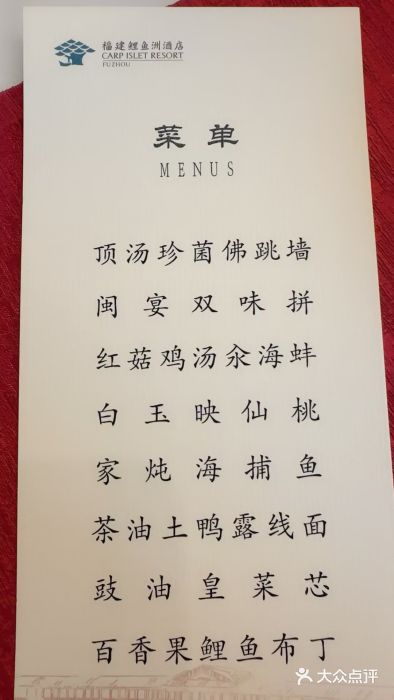 福建鲤鱼洲酒店
CARP ISLET RESORT
FUZHOU
菜单
MENUS
顶汤珍菌佛跳墙
闽宴双味拼
红菇鸡汤汆海蚌
白玉映仙桃
家炖海捕鱼
茶油土鸭露线面
豉油皇菜芯
百香果鲤鱼布丁
大众点评